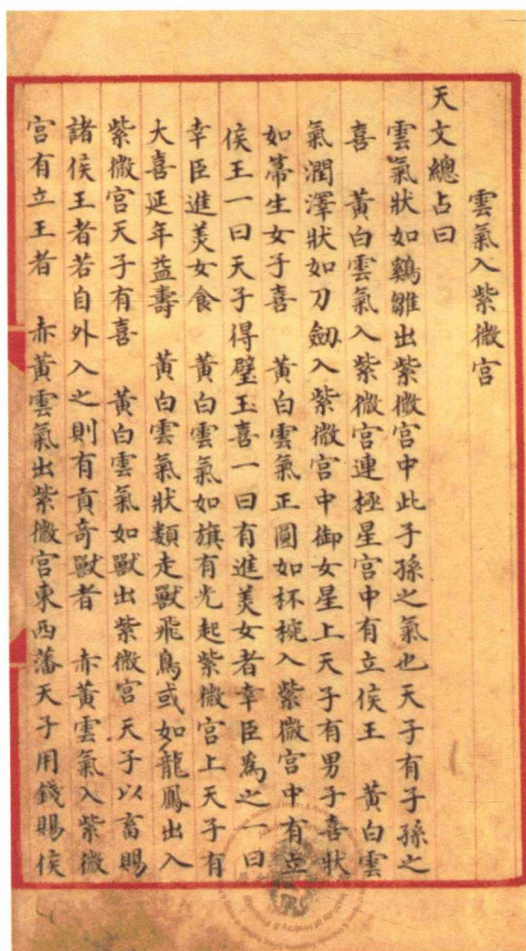 雲氣入紫微宫
天文總占曰
雲氣狀如鷄雛出紫微宫中此子孫之氣也天子有子孫之
喜　黄白雲氣入紫微宫連極星宫中有立侯王　黄白雲
氣潤澤狀如刀劒入紫微宫中御女星上天子有男子喜狀
如箒生女子喜　黄白雲氣正圓如杯椀入紫微宫中有立
侯王一曰天子得璧玉喜一曰有進美女者幸臣為之一曰
幸臣進美女食　黄白雲氣如旗有光起紫微宫上天子有
大喜延年益壽　黄白雲氣狀類走獸飛鳥或如龍鳳出入
紫微宫天子有喜　黄白雲氣如獸出紫微宫天子以畜賜
諸侯王者若自外入之則有貢奇獸者　赤黄雲氣入紫微
宫有立王者　赤黄雲氣出紫微宫東西藩天子用錢賜侯